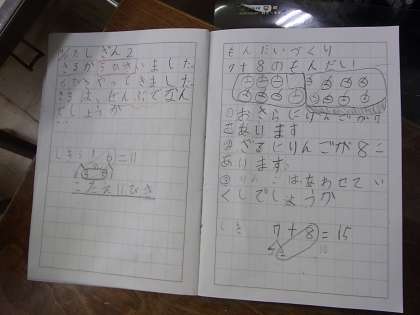 たしざん2
さるが5ひきいました。
6ぴきやってきました。
さるは、ぜんぶでなん
でしょうか
しき 5+6=11
こたえ11ぴき
もんだいづくり
7+8のもんだい
①おさらにりんごが7こ
あります
②ざるにりんごが8こ
あります。
③りんごはあわせてい
くつでしょうか
しき
7+8=15